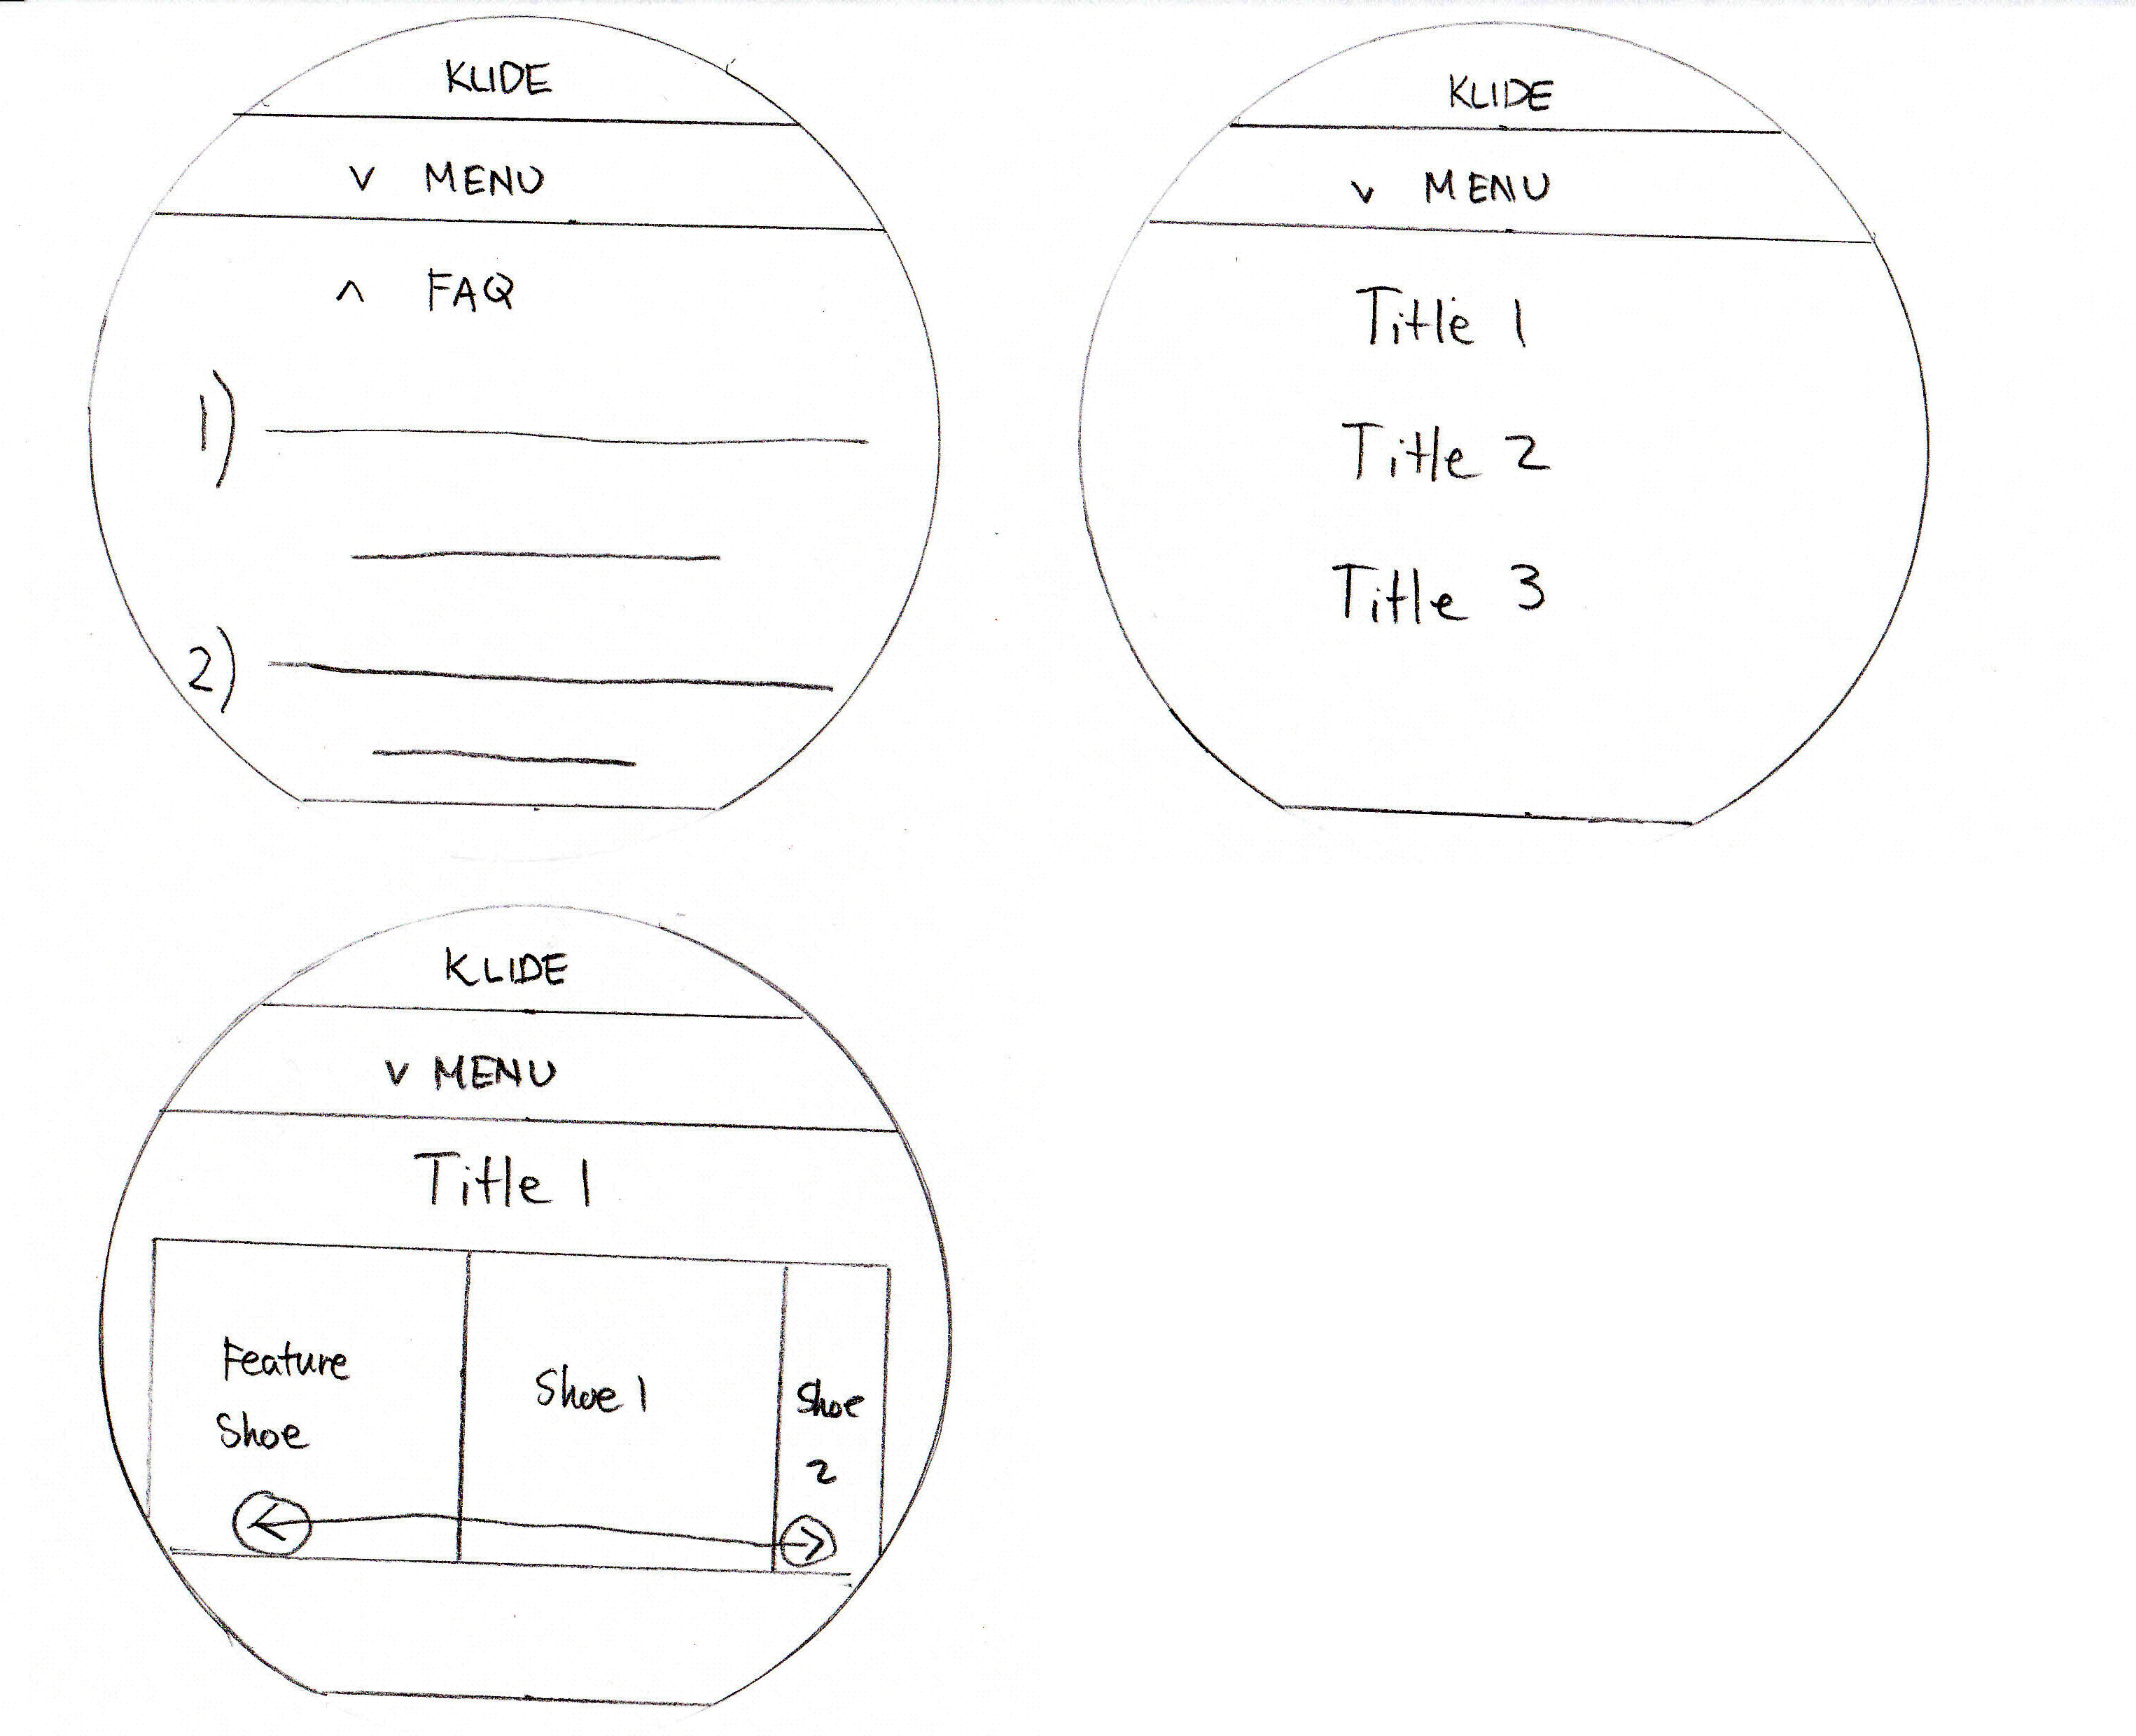 KLIDE
v MENU
^ FAQ
1)
2)
KLIDE
v MENU
Title 1
Title 2
Title 3
KLIDE
v MENU
Title 1
Feature
Shoe
Shoe 1
Shoe
2